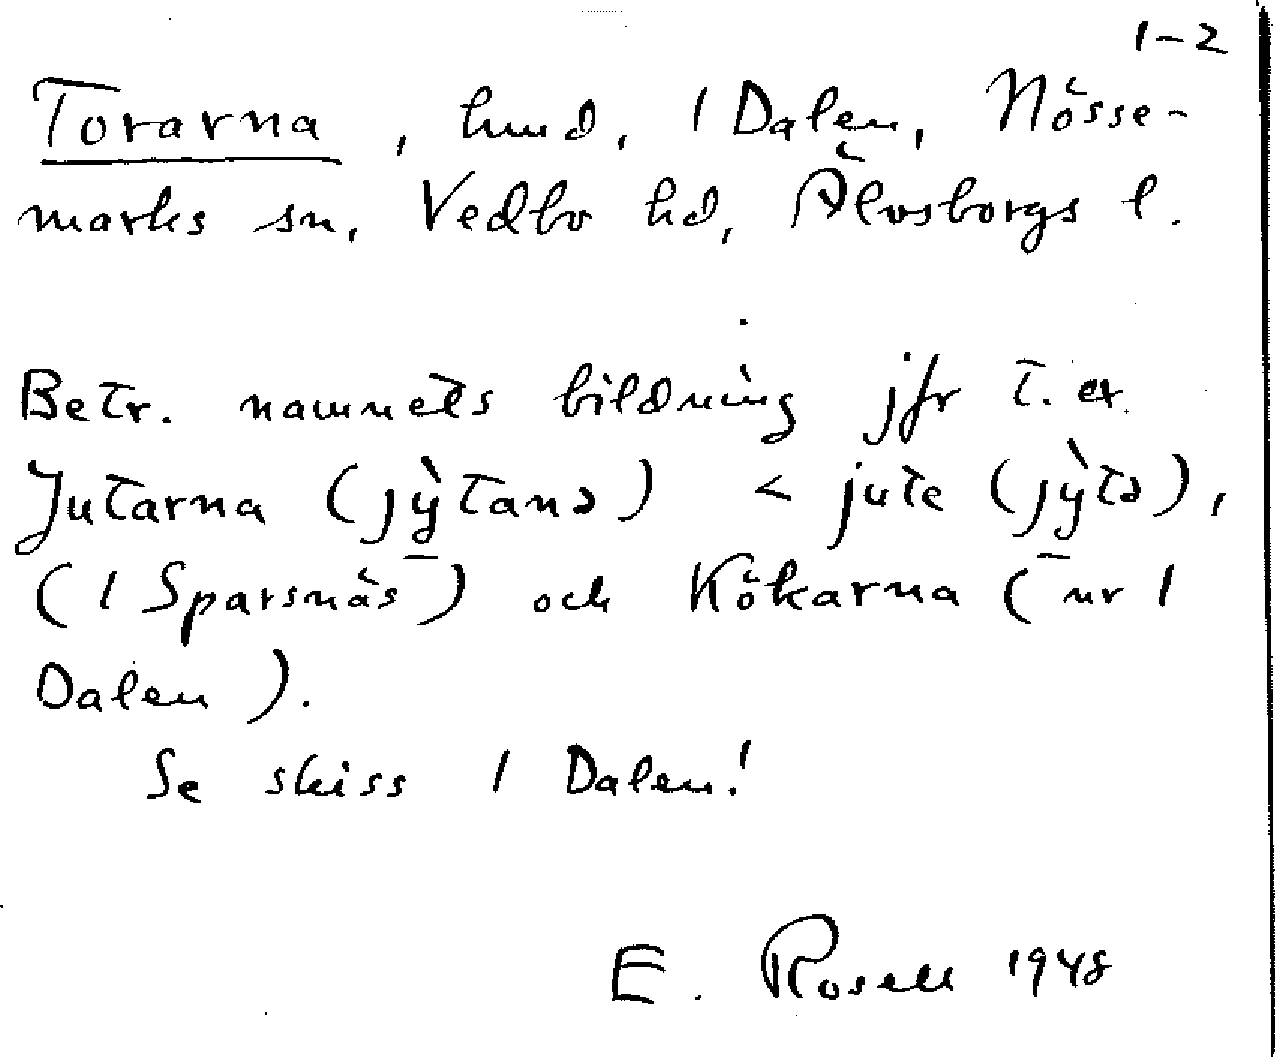 1-2
Torarna, hmd, 1 Dalen, Nösse-
marks sn, Vedbo hd, Älvsborgs l.
Betr. namnets bildning jfr t. ex.
Jutarna (jỳtanə) < jute (jỳtə),
(1 Sparsnäs) och Kökarna (nr 1
Dalen).
Se skiss 1 Dalen!
E. Rosell 1948